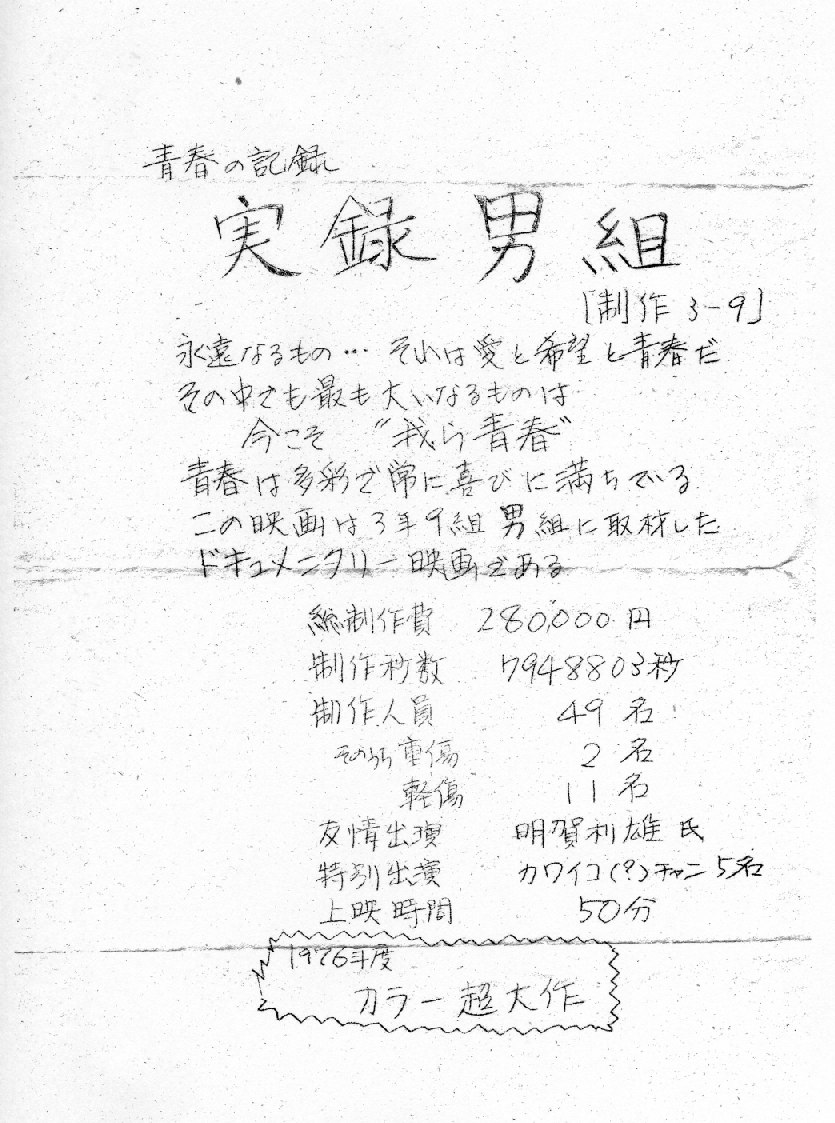 青春の記録
実録男組
「制作 3-9」
永遠なるもの… それは愛と希望と青春だ
その中でも最も大いなるものは
今こそ “我ら青春”
青春は多彩で常に喜びに満ちている
この映画は3年9組 男組に取材した
ドキュメンタリー映画である
総制作費 280,000円
制作秒数 7948803秒
制作人員 49名
そのうち重傷 2名
軽傷 11名
友情出演 明賀利雄 氏
特別出演 カワイコ(?)チャン5名
上映時間 50分
1976年度
カラー超大作